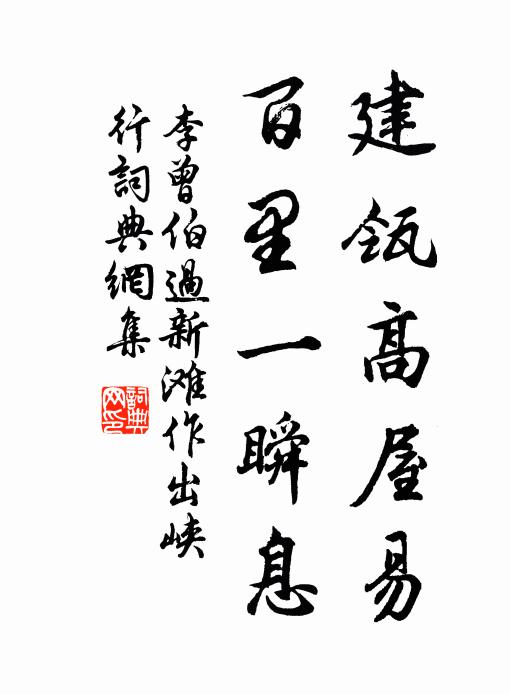 建瓴高屋易
百里一瞬息
李曾伯過新滩作出峡
行詞典網集
詞典
网印